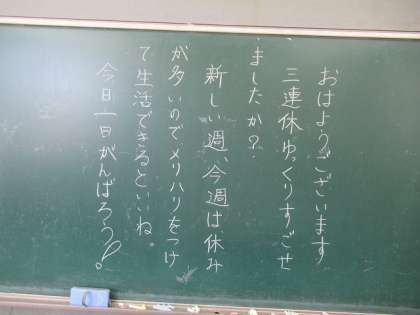 おはようございます
三連休ゆっくりすごせ
ましたか?
新しい週、今週は休み
が多いのでメリハリをつけ
て生活できるといいね。
今日一日がんばろう!